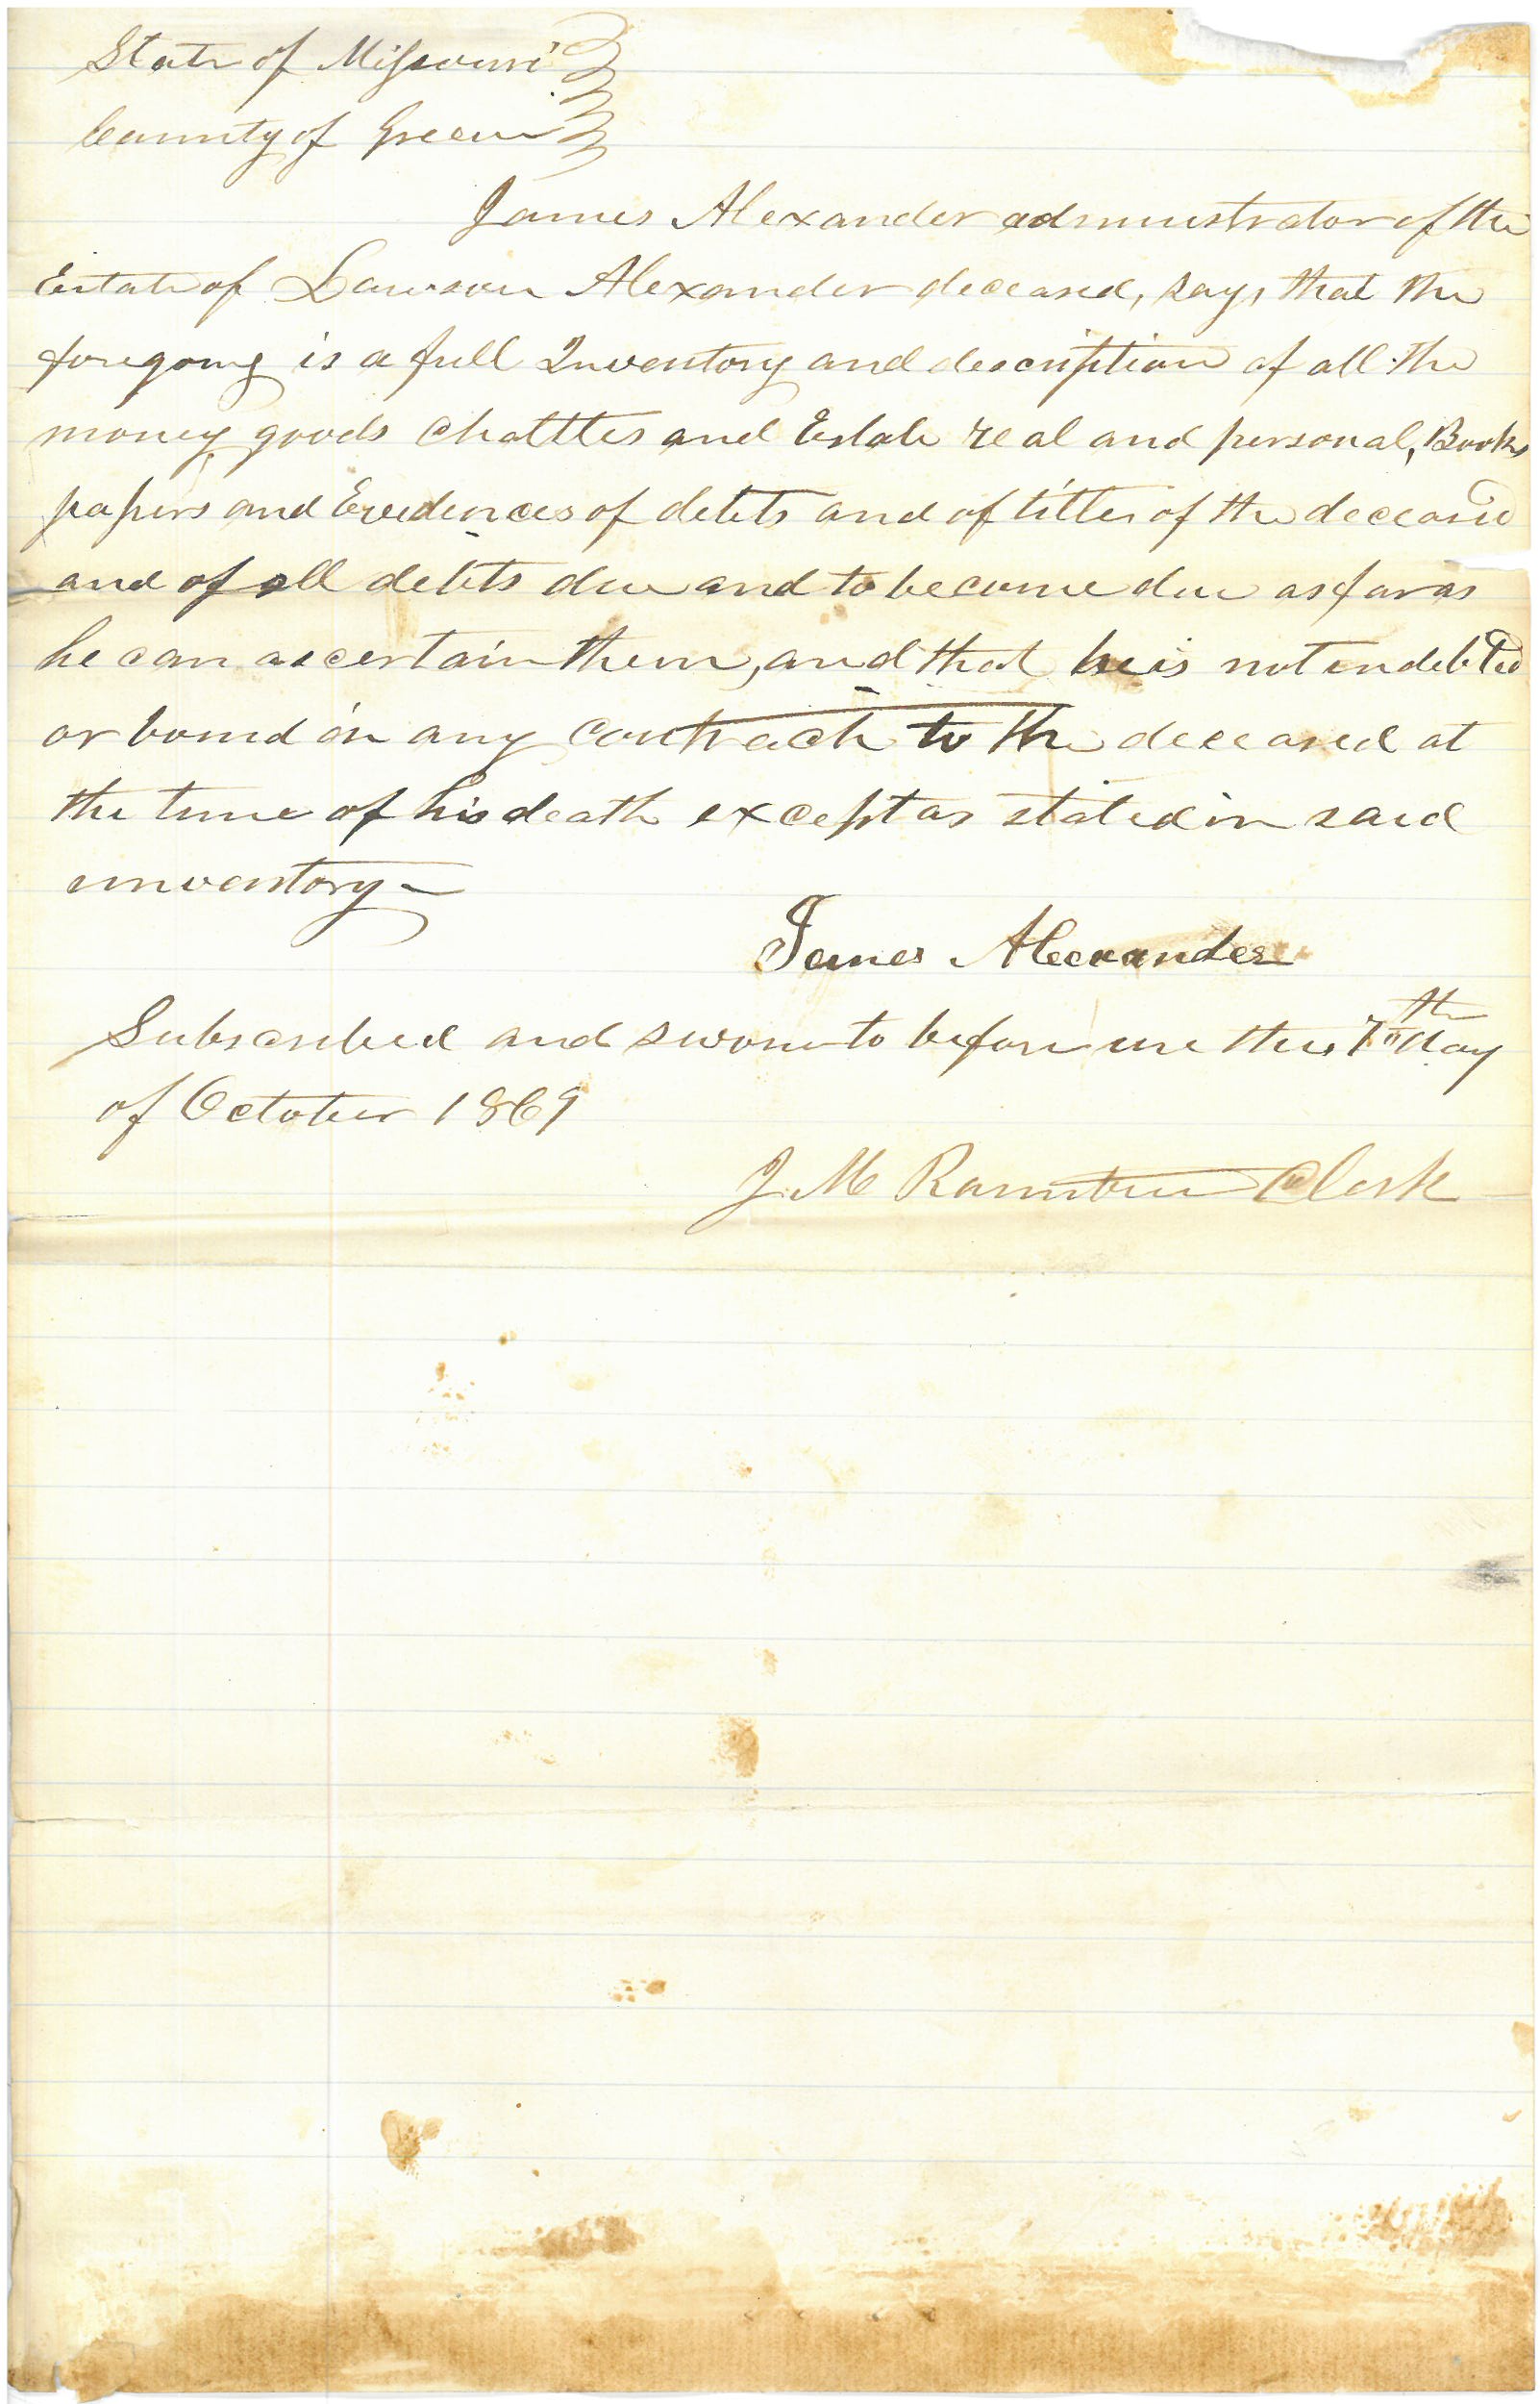 State of Missouri
County of Greene
James Alexander administrator of the
Estate of Lawson Alexander deceased, says that the
foregoing is a full Inventory and description of all the
money goods chattles and Estate real and personal, Books
papers and Evedences of debts and of titles of the deceased
and of all debts due and to become due as far as
he can ascertain them, and that he is not indebted
or bound in any contract to the deceased at
the time of his death except as stated in said
inventory —
James Alexander
Subscribed and sworn to before me this 7th day
of October 1869
J. M Rountree Clerk